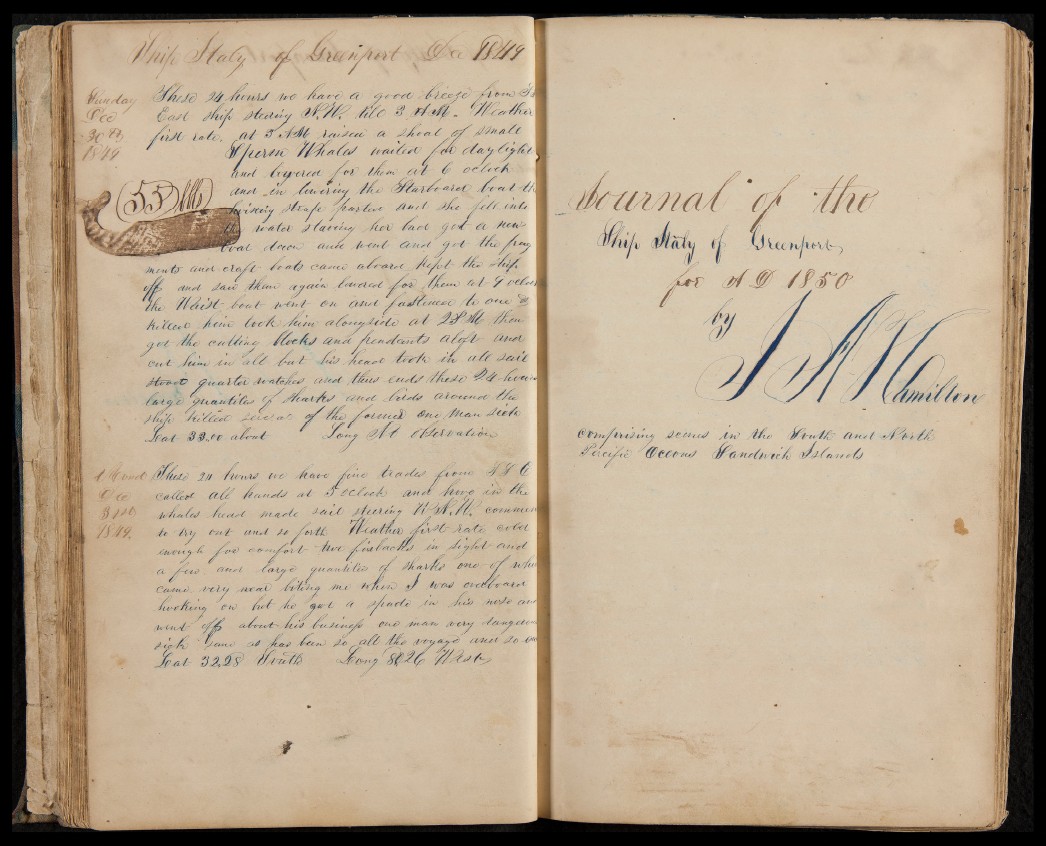 Ship Italy of Greenport Dec 1849
Sunday
Dec
30th
1849
These 24 hours we have a good breeze from
East ship steering N.W. till 3 AM. Weather
first rate. at 3 AM raised a shoal of small
Sperm Whales waited for daylight
and lowered for them at 6 oclock
and in lowering the Starboard boat the
hoisting strap parted and she fell into
the water staving her bad got a new
boat down and went and got the frag
ments and craft boats came aboard kept the ship
off and saw them again lowered for them at 9 oclock
the Waist boat went on and fastened to one
killed him took him alongside at 2 PM then
got the cutting blocks and pendants aloft and
cut him in all but his head took in all sail
stood quarter watches and thus ends these 24 hours
large quantities of sharks and birds around the
ship killed several of the former one man sick
Lat 33.00 about Long No observation
55 bbls
Mond
Dec
31st
1849.
These 24 hours we have fine trades from S S E
called all hands at 5 oclock and hove in the
whales head made sail steering W.N.W. commen
to try out and so forth Weather first rate cold
enough for comfort two finbacks in sight and
a few and large quantities of sharks one of
came very near biting me when I was overboard
hooking on but he got a spade in his nose and
went off about his business one man very
sick same as has been so all the voyage and so
Lat 32,28 South Long 80 26 West
Journal of the
Ship Italy of Greenport,
for A D 1850
by
J A Hamilton
comprising scenes in the South and North
Pacific Oceans Sandwich Islands